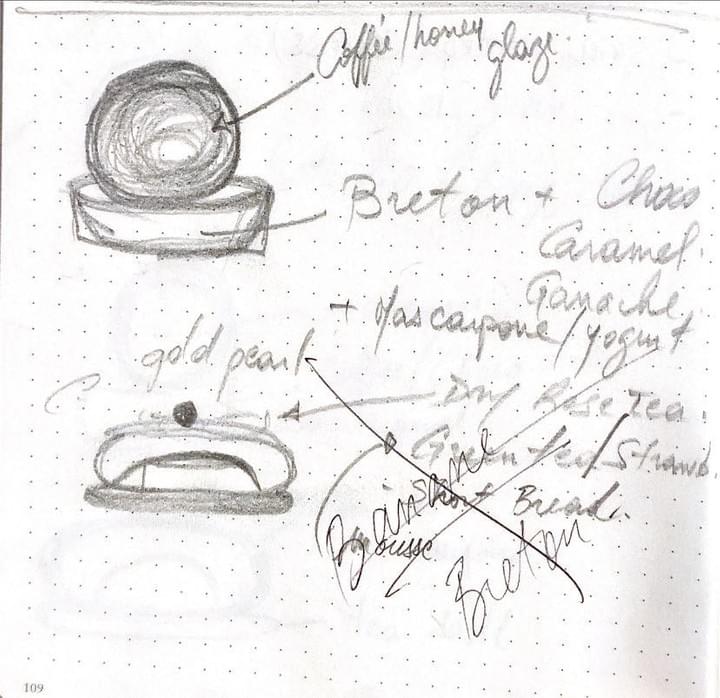 Coffee/honey
glaze.
Breton + Choco
Caramel.
Ganache
+ Mascarpone/yogurt
gold pearl
Dry Rose Tea.
Green tea/Strawb.
Short Bread.
Banane
Mousse
Breton
109